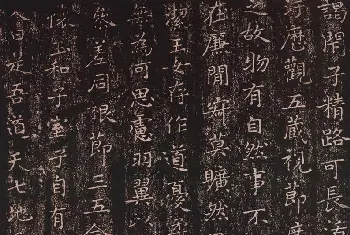 閒子精路可長
歷觀五藏視節度
之故物有自然事不
在廉間寂莫曠然
潔玉女存作道憂
無為何思慮羽翼以
參差同根節三五合
懷玉和子室子自有
入日是吾道天七地